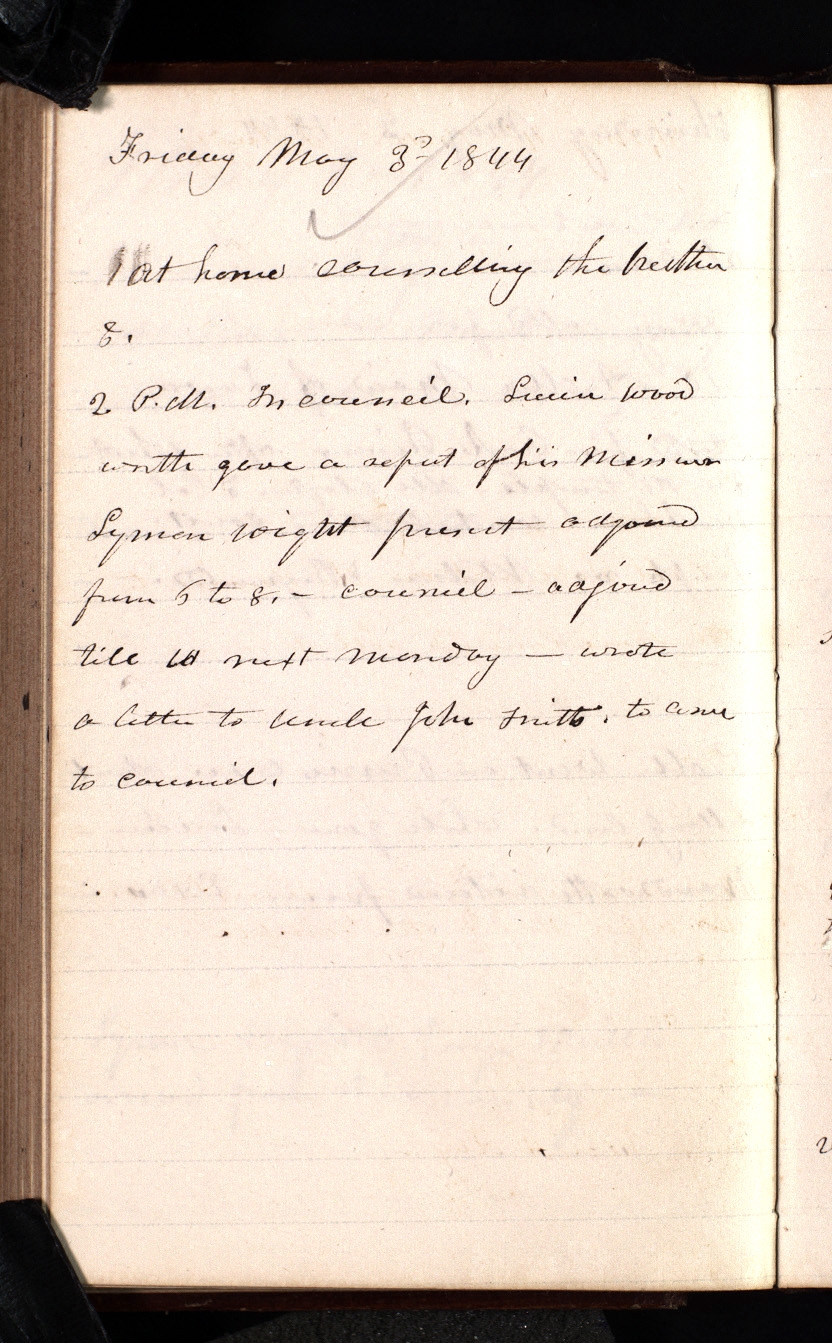 Friday May 3d 1844
at home counselling the brethen
&.
2 P.M. In council. Lucien Wood
worth gave a report of his Mission
Lyman Wight present adjound
from 6 to 8. – council – adjound
till next Monday — wrote
a letter to Uncle John Smith. to come
to council.